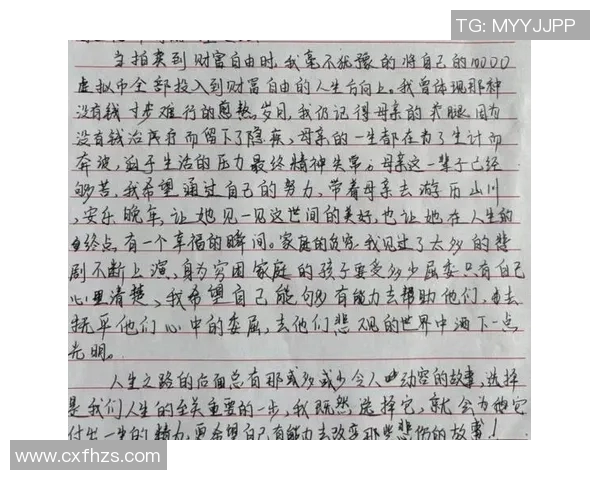 TG: MYYJJPP
当拍卖到财富自由时,我毫不犹豫的将自己的10000
虚拟币全部投入到财富自由的人生方向上。我曾体现那种
没有钱寸步难行的 岁月,我仍记得母亲的 腿因为
没有钱治疗而留下了隐疾、母亲的一生都在为了生计而
奔波,迫于生活的压力最终精神失常。母亲这一辈子已经
够苦,我希望通过自己的努力,带着母亲去游历山川
,安乐晚年,让她见一见这世间的美好,也让她在人生的
终点有一个幸福的瞬间。家庭的 我见过了太多的悲
剧不断上演,身为穷困家庭的孩子要受多少屈委只有自己
心里清楚、我希望自己能够有能力去帮助他们,去
抚平他们心中的委屈,去他们悲观的世界中洒下一点
光明。
人生之路的后面总有那或多或少令人动容的故事,选择
是我们人生的至关重要的一步,我既然选择它,就会为他
付出一生的精力,更希望自己有能力去改变那些悲伤的故事!
www.cxfhzs.com